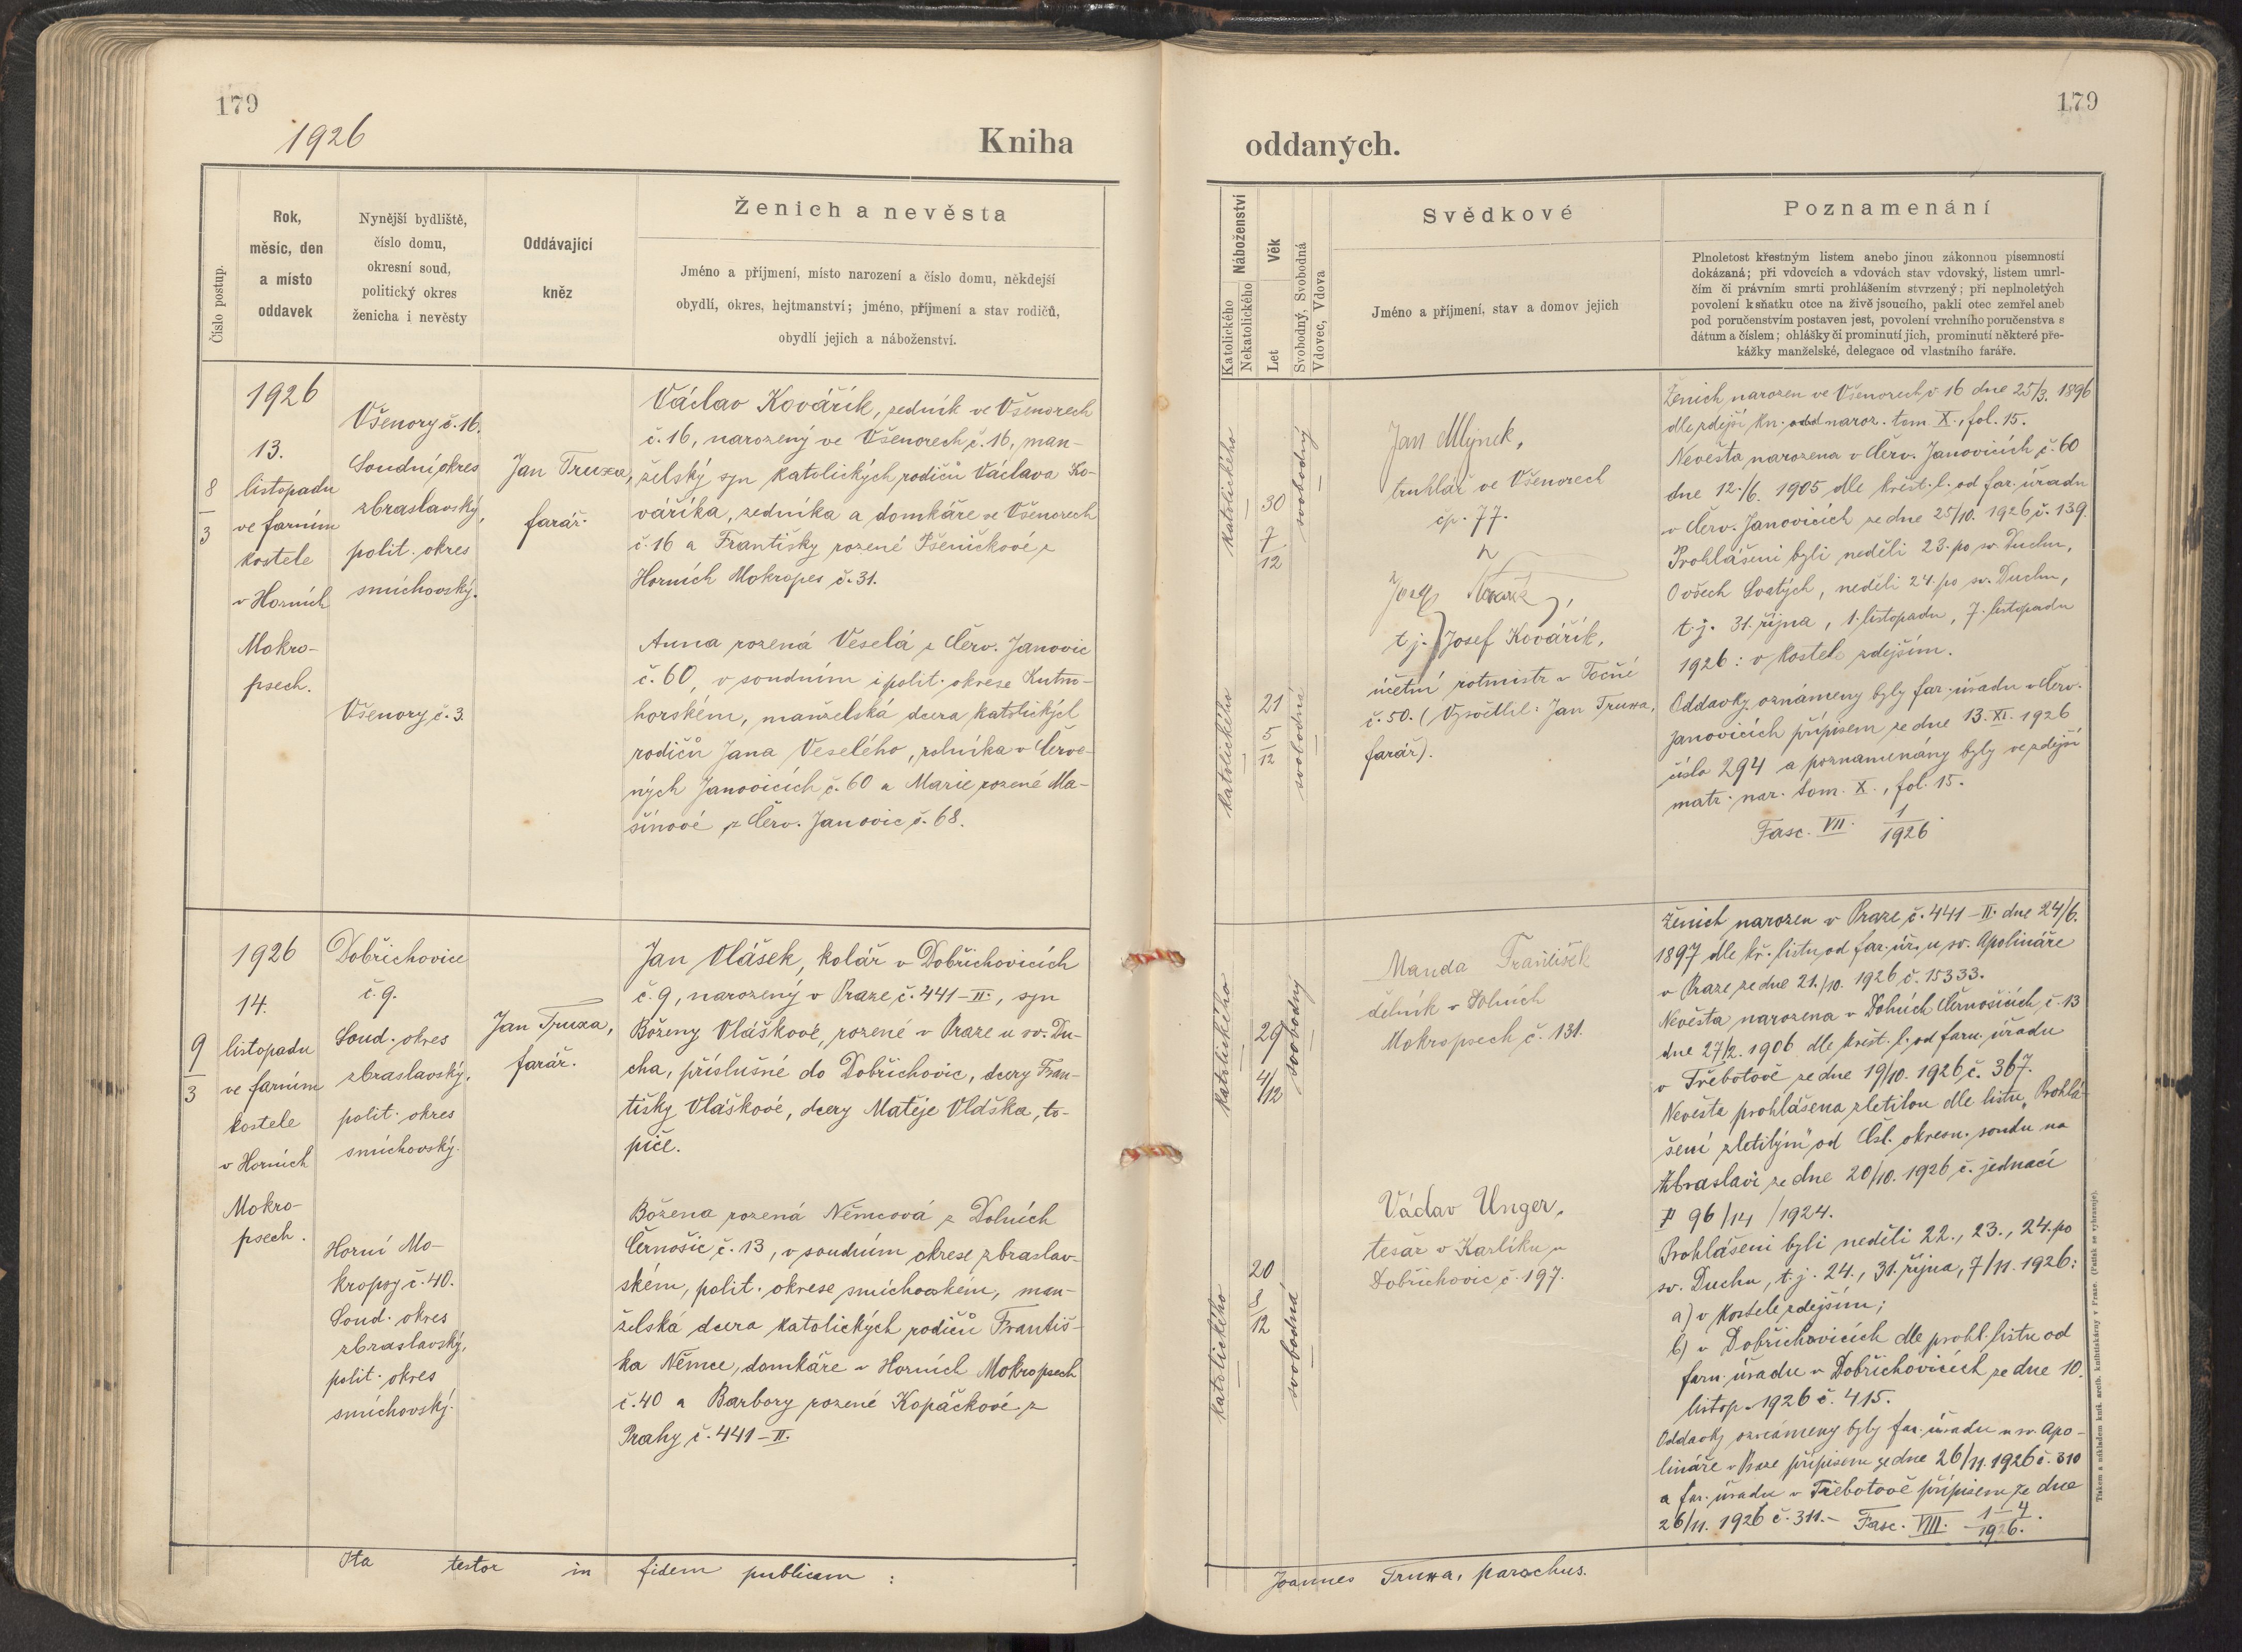 179
1926
Kniha
Číslo postup.
Rok,
měsíc, den
a místo
oddavek
Nynější bydliště,
číslo domu,
okresní soud,
politický okres
ženicha i nevěsty
Oddávající
kněz
Ženich a nevěsta
Jméno a příjmení, místo narození a číslo domu, někdejší
obydlí, okres, hejtmanství; jméno, příjmení a stav rodičů,
obydlí jejich a náboženství.
8
3
1926
13.
listopadu
ve farním
kostele
v Horních
Mokro-
psech.
Všenory č. 16.
Soudní okres
zbraslavský,
polit. okres
smíchovský.
Všenory č. 3.
Jan Truxa,
farář.
Václav Kovářík, zedník ve Všenorech
č. 16, narozený ve Všenorech č. 16, man-
želský syn katolických rodičů Václava Ko-
váříka, zedníka a domkáře ve Všenorech
č. 16 a Františky rozené Pšeničkové z
Horních Mokropes č. 31.
Anna rozená Veselá z Červ. Janovic
č. 60, v soudním i polit. okrese Kutno-
horském, manželská dcera katolických
rodičů Jana Veselého, rolníka v Červe-
ných Janovicích č. 60 a Marie rozené Ma-
šínové z Červ. Janovic č. 68.
9
3
1926
14.
listopadu
ve farním
kostele
v Horních
Mokro-
psech.
Dobřichovice
č. 9.
Soud. okres
zbraslavský,
polit. okres
smíchovský.
Horní Mo-
kropsy č. 40.
Soud. okres
zbraslavský,
polit. okres
smíchovský.
Jan Truxa,
farář.
Jan Vlášek, kolář v Dobřichovicích
č. 9, narozený v Praze č. 441-II., syn
Boženy Vláškové, rozené v Praze u sv. Du-
cha, příslušné do Dobřichovic, dcery Fran-
tišky Vláškové, dcery Matěje Vláška, to-
piče.
Božena rozená Němcová z Dolních
Černošic č. 13, v soudním okrese zbraslav-
ském, polit. okrese smíchovském, man-
želská dcera katolických rodičů Františ-
ka Němce, domkáře v Horních Mokropsech
č. 40 a Barbory rozené Kopáčkové z
Prahy č. 441-II.
Ita testor in fidem publicam :
179
oddaných.
Náboženství
Katolického
Nekatolického
Věk
Let
Svobodný, Svobodná
Vdovec, Vdova
Svědkové
Jméno a příjmení, stav a domov jejich
Poznamenání
Plnoletost křestným listem anebo jinou zákonnou písemností
dokázaná; při vdovcích a vdovách stav vdovský, listem umrl-
čím či právním smrti prohlášením stvrzený; při neplnoletých
povolení k sňatku otce na živě jsoucího, pakli otec zemřel aneb
pod poručenstvím postaven jest, povolení vrchního poručenstva s
dátum a číslem; ohlášky či prominutí jich, prominutí některé pře-
kážky manželské, delegace od vlastního faráře.
katolického
30
7
12
svobodný
katolického
21
5
12
svobodná
Jan Mlynek,
truhlář ve Všenorech
čp. 77.
Josef Kovařík
t. j. Josef Kovářík,
účetní rotmistr v Točné
č. 50. (Vysvětlil: Jan Truxa,
farář).
Ženich narozen ve Všenorech č 16 dne 25/3. 1896
dle zdejší kn. naroz. tom. X., fol. 15.
Nevěsta narozena v Červ. Janovicích č. 60
dne 12./6. 1905 dle křest. l. od far. úřadu
v Červ. Janovicích ze dne 25/10. 1926 č. 139.
Prohlášeni byli neděli 23. po sv. Duchu,
O všech Svatých, neděli 24. po sv. Duchu,
t. j. 31. října, 1. listopadu, 7. listopadu
1926: v kostele zdejším.
Oddavky oznámeny byly far. úřadu v Červ.
Janovicích přípisem ze dne 13. XI. 1926
číslo 294 a poznamenány byly ve zdejší
matr. nar. tom. X., fol. 15.
Fasc. VII. 1
1926
katolického
29
4/12
svobodný
katolického
20
8
12
svobodná
Manda František
dělník v Dolních
Mokropsech č. 131.
Václav Unger,
tesař v Karlíku u
Dobřichovic č. 197.
Ženich narozen v Praze č. 441-II. dne 24/6.
1897 dle kř. listu od far. úř. u sv. Apolináře
v Praze ze dne 21./10. 1926 č. 15333.
Nevěsta narozena v Dolních Černošicích č. 13
dne 27/2. 1906 dle křest. l. od farn. úřadu
v Třebotově ze dne 19/10. 1926 č. 367.
Nevěsta prohlášena zletilou dle listu „Prohlá-
šení zletilým" od Čsl. okresn. soudu na
Zbraslavi ze dne 20/10. 1926 č. jednací
P 96/14 /1924.
Prohlášeni byli neděli 22., 23., 24. po
sv. Duchu, t. j. 24., 31. října, 7/11. 1926:
a) v kostele zdejším;
b) v Dobřichovicích dle prohl. listu od
farn. úřadu v Dobřichovicích ze dne 10.
listop. 1926 č. 415.
Oddavky oznámeny byly far. úřadu u sv. Apo-
lináře v Praze přípisem ze dne 26/11. 1926 č. 310
a far. úřadu v Třebotově přípisem ze dne
26/11. 1926 č. 311.- Fasc. VIII. 1-4.
1926.
Joannes Truxa, parochus.
Tiskem a nákladem kníž. arcib. knihtiskárny v Praze. (Padělek se vyhrazuje).